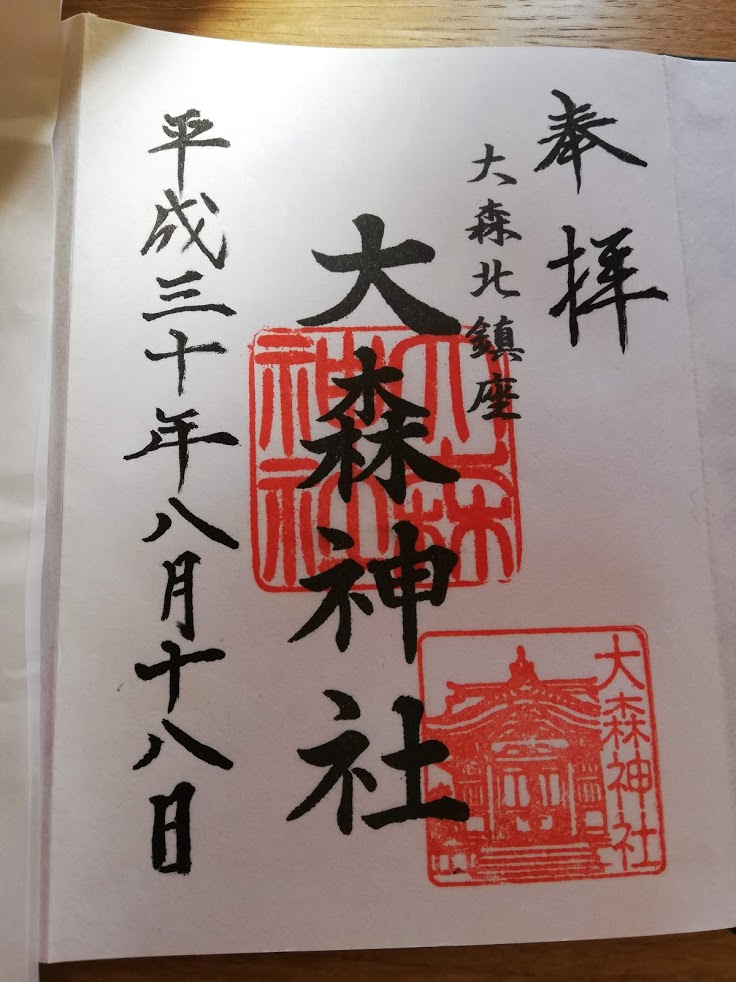 奉拝
大森北鎮座
大森神社
平成三十年八月十八日
大森
神社
大森神社